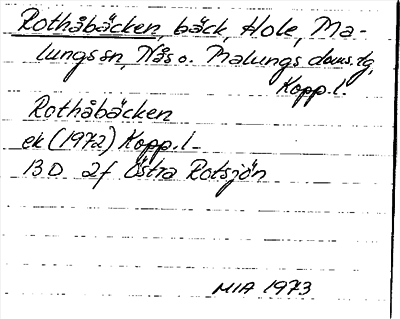 Rothåbäcken, bäck, Hole, Ma-
lungs sn, Nås o. Malungs doms.tg,
Kopp.l.
Rothåbäcken
ek (1972) Kopp.l
13 D 2f Östra Rotsjön
MIA 1973